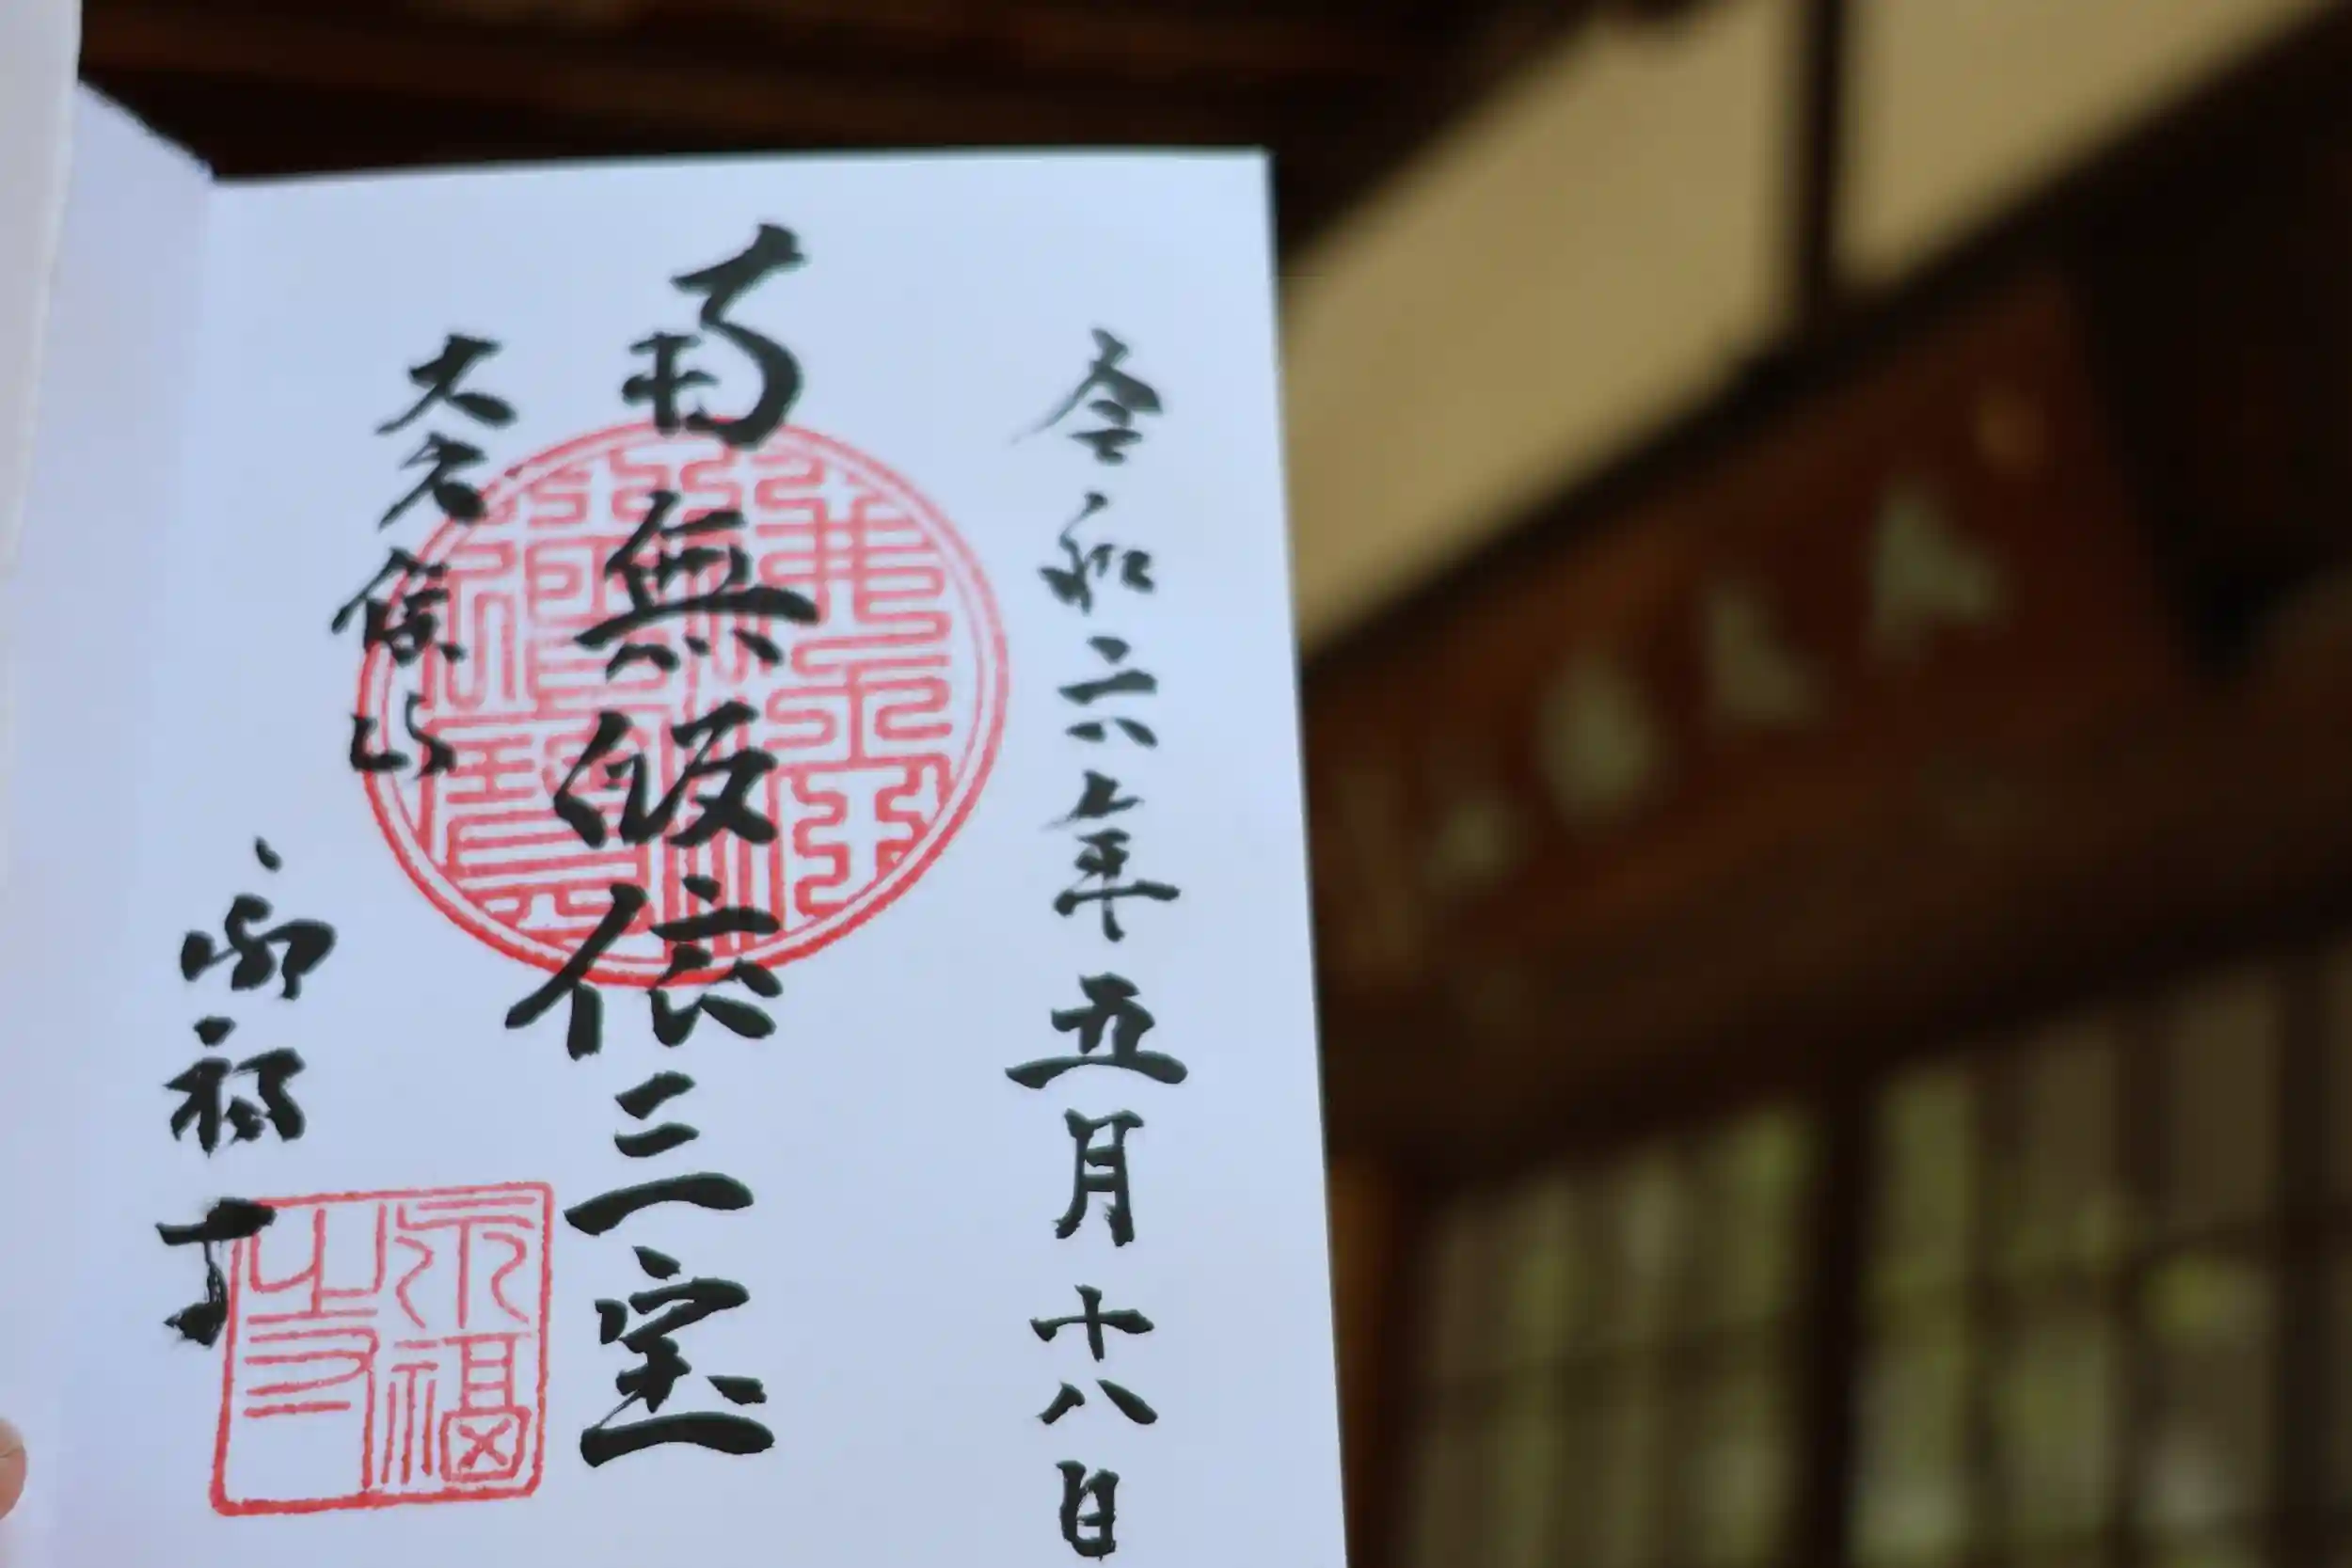 令和六年五月十八日
南無皈依三宝
大久保山
永福寺